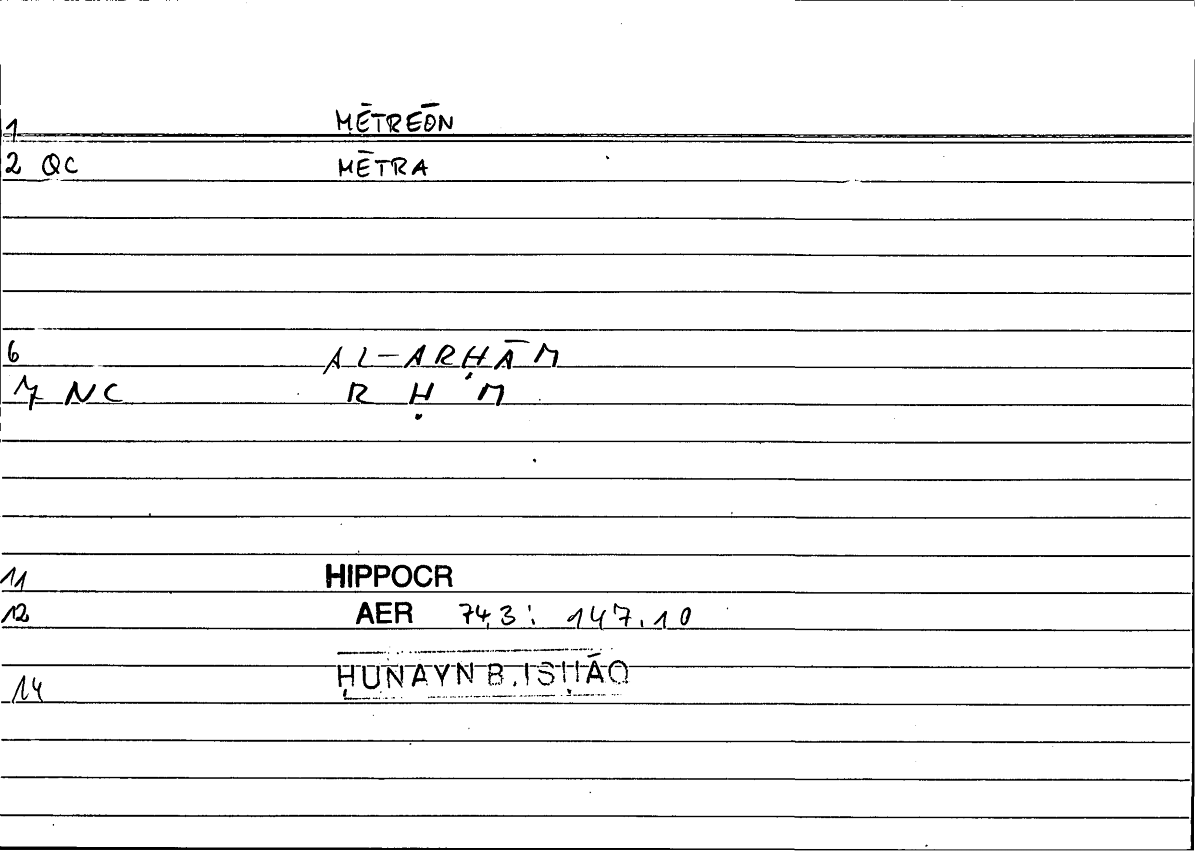 1 MĒTREŌN
2 QC MĒTRA
6 AL-ARḤĀM
7 NC R Ḥ M
11 HIPPOCR
12 AER 74,3: 147.10
14 ḤUNAYN B. ISḤĀQ